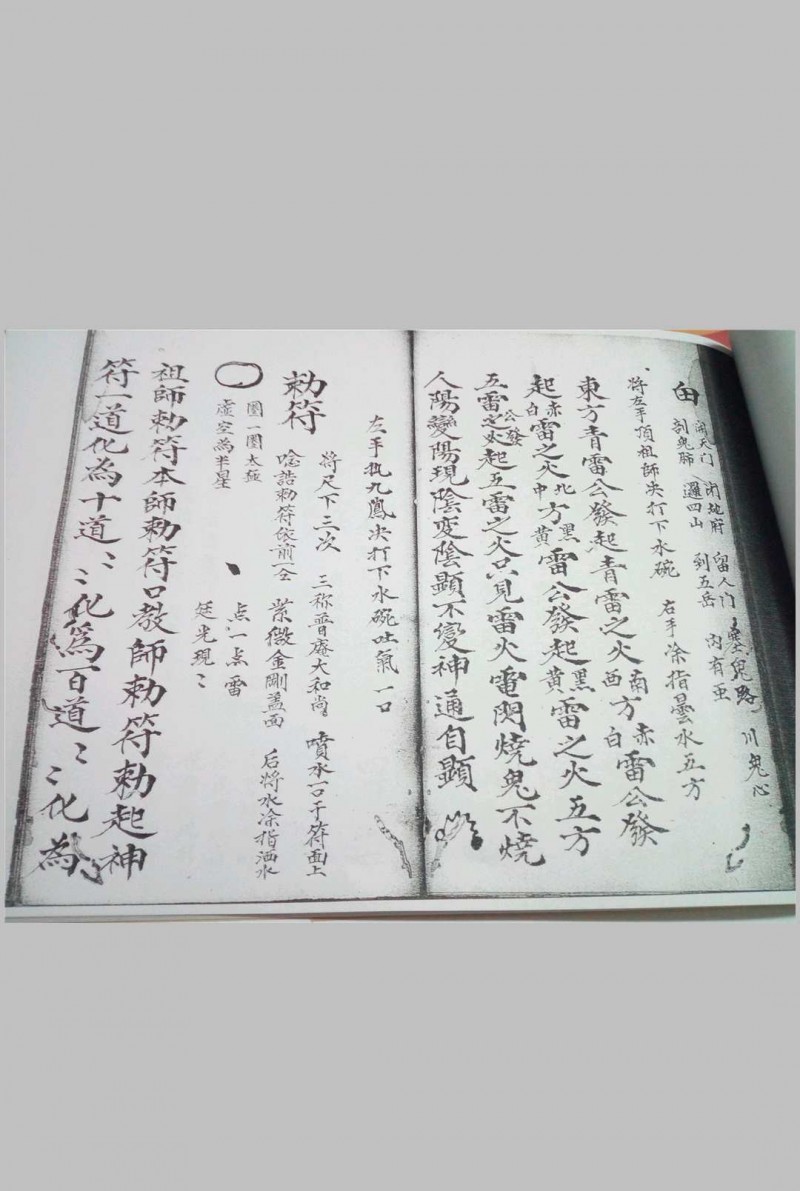 開天门 閉地府 留人门 塞鬼路 川鬼心
由 剖鬼肺 邏四山 到五岳 内有亜
將左手頂祖師决打下水碗 右手凃指曇水五方
東方青雷公發起青雷之火南方赤雷公發
西白
起赤雷之火北方黑雷公發起黑雷之火五方
白 中 黄 黄
五雷公發起五雷之火只見雷火電閃燒鬼不燒
之火
人陽變陽現陰変陰顯不變神通自顯
左手抯九鳳决打下水碗吐氣一口
將尺下三次 三称普庵大和尚 噴水一口于符面上
勅符 唸誥勅符依前一仝 紫微金剛蓋面 后將水凃指洒水
圈一圈太極 点一点雷
虚空為半星 廷光現〻
祖師勅符本師勅符口教師勅符勅起神
符一道化為十道〻〻化爲百道〻〻化為